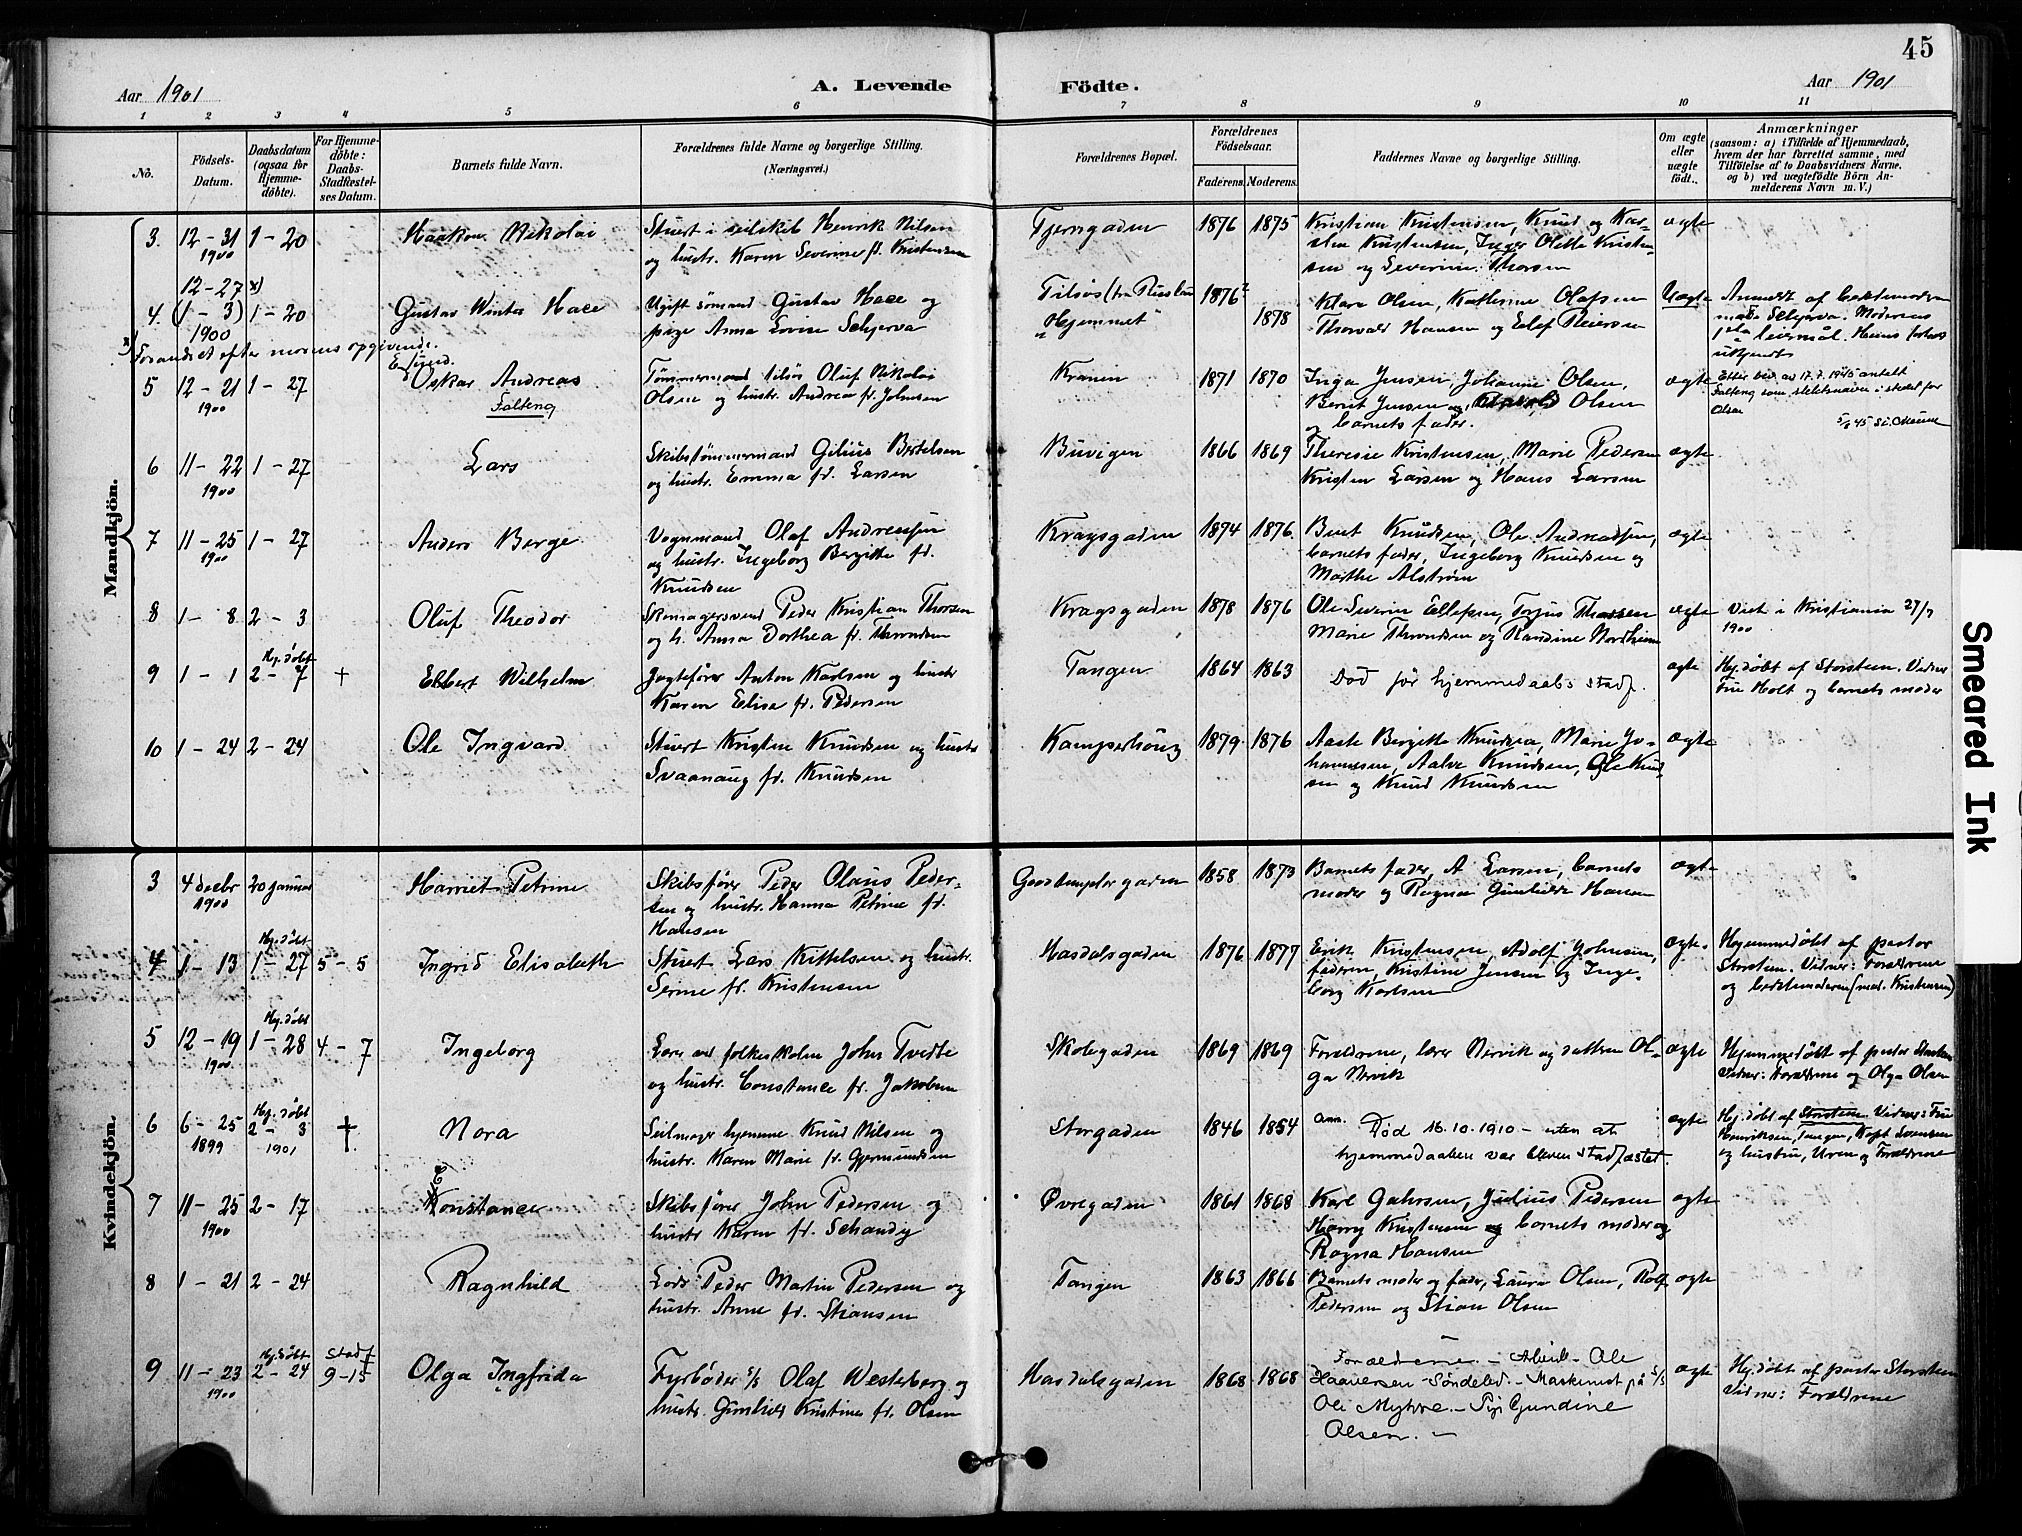 45
Aar 1901
A. Levende
Födte.
Aar 1901
1 2 3 4 5 6 7 8 9 10 11
No.
Födsels-
Datum.
Daabsdatum
(ogsaa for
Hjemme-
döbte).
For Hjemme-
döbte:
Daabs-
Stadfæstel-
ses Datum.
Barnets fulde Navn.
Forældrenes fulde Navne og borgerlige Stilling.
(Næringsvei.)
Forældrenes Bopæl.
Forældrenes
Födselsaar.
Faderens. Moderens.
Faddernes Navne og borgerlige Stilling.
Om ægte
eller
uægte
födt.
Anmærkninger
(saasom: a) i Tilfælde af Hjemmedaab,
hvem der har forrettet samme, med
Tilföielse af to Daabsvidners Navne,
og b) ved uægtefödte Börn An-
melderens Navn m. V.)
Mandkjön.
3. 12-31 1-20
1900
Haakon Nikolai
Stuert i seilskib Henrik Nilsen
og hustr. Karen Severine f. Kristensen
Tjernsgaden 1876 1875
Kristian Kristensen, Knud og Kar-
sten Kristensen, Inger Olette Kristen-
sen og Severine Thorsen
ægte
12-27 x)
4. (1-3) 1-20
1900
Gustav Winter Hace
Ugift sømand Gustav Hace og
pige Anna Lovise Schjerva
"Hjemmet"
1876 1878
Klara Olsen, Kathrine Olafsen
Thorvald Hansen og Elef Reiersen
Uægte
x) Forandret efter morens opgivende.
5 12-21 1-27
1900
Oskar Andreas
Falteng
Tømmermand tilsøs Oluf Nikolai
Olsen og hustr. Andrea fr. Johnsen
Kranen 1871 1870
Inga Jensen, Johanne Olsen,
Berut Jensen og Olsen
og barnets fader.
ægte
Efter bev. av 17.7.1945 antatt
Falteng som slektsnavn i stedet for
Olsen
6 11-22 1-27
1900
Lars
Skibstømmermand Gilius Bertelsen
og hustr. Emma fr. Larsen
Buvigen 1866 1869
Theresie Kristensen, Marie Pedersen
Kristen Larsen og Hans Larsen
ægte
7 11-25 1-27
1900
Anders Berge
Vognmand Olaf Andreassen
og hustr. Ingeborg Bergitte fr.
Knudsen
Kragsgaden 1874 1876
Berut Knudsen, Ole Andreassen,
barnets fader, Ingeborg Knudsen og
Marthe Alstrøm
ægte
8 1-8 2-3
Oluf Theodor
Skomagersvend Peder Kristian Thorsen
og h. Anna Dorthea fr. Throndsen
Kragsgaden 1878 1876
Ole Severin Ellefsen, Torjus Thorsen
Marie Throndsen og Randine Nordheim
ægte
Viet i Kristiania 27/7
1900
Hj. døbt
9 1-1 2-7 +
Elbert Wilhelm
Jagtfører Anton Karlsen og hustr
Karen Elise fr. Pedersen
Tangen 1864 1863
Død før hjemmedaabs stadf.
ægte
Hj. døbt af Storsteen. Vidner
Fru Holt og barnets moder
10 1-24 2-24
Ole Ingvard
Stuert Kristen Knudsen og hustr
Svaanaug fr. Knudsen
Kamperhaug 1879 1876
Aaste Bergitte Knudsen, Marie Jo-
hannesen, Aalve Knudsen, Ole Knud-
sen og Knud Knudsen
ægte
Kvindekjön.
3 4 decbr 20 januar
1900
Harriet Petrine
Skibsfører Peder Olaus Peder-
sen og hustr. Hanna Petrine fr.
Hansen
Goodtemplargaden 1858 1873
Barnets fader, A Larsen, barnets
moder og Ragna Gunhilde Hansen
ægte
Hj. døbt
4 1-13 1-27 5-5
Ingrid Elisabeth
Stuert Lars Kittelsen og hustr.
Serine fr. Kristensen
Hasdalsgaden 1876 1877
Erik Kristensen, Adolf Johnsen,
faderen, Kristine Jensen og Inge-
borg Karlsen
ægte
Hjemmedøbt af pastor
Storsteen. Vidner: Forældrene
og bedstemoderen (mad. Kristensen)
Hj. døbt
5 12-19 1-28 4-7
1900
Ingeborg
Lærer ved folkeskolen John Tvedte
og hustr. Constance fr. Jakobsen
Skolegaden 1869 1869
Forældrene, lærer Nervik og datteren Ol-
ga Nervik
ægte
Hjemmedøbt af pastor Storsteen
Vidner: Forældrene og Olga Olsen
Hj. døbt
6 6-25 2-3 +
1899 1901
Nora
Seilmager hjemme Knud Nilsen og
hustr. Karen Marie fr. Gjermundsen
Storgaden 1846 1854
Anm. Død 16.10.1910 - uten at
hjemmedaaben var bleven stadfæstet.
ægte
Hj. døbt af Storsteen Vidner: Fru
Henriksen, Tangen, Kapt Svensen
og hustru, Uren og Forældrene
7 11-25 2-17
1900
Konstance
Skibsfører John Pedersen og
hustr Karen fr. Schandy
Øvregaden 1861 1868
Karl Gahrsen, Julius Pedersen
Harry Kristensen og barnets moder og
Ragna Hansen
ægte
8 1-21 2-24
Ragnhild
Lods Peder Martin Pedersen og
hustr. Anne fr. Stiansen
Tangen 1863 1866
Barnets moder og fader, Laura Olsen, Rolf
Pedersen og Stian Olsen
ægte
Hj. døbt stadf
9 11-23 2-24 9-15
1900
Olga Ingfrida
Fyrbøder s/s Olaf Westerberg og
hustr. Gunhild Kristine fr. Olsen
Hasdalsgaden 1868 1868
Forældrene. - Arbeid- Ole
Haaversen - Søndeled. - Maskinist på s/s
Ole Myhre. - Pige Gundine
Olsen. -
ægte
Hj. døbt af pastor Storsteen
Vidner: Forældrene
Smeared Ink